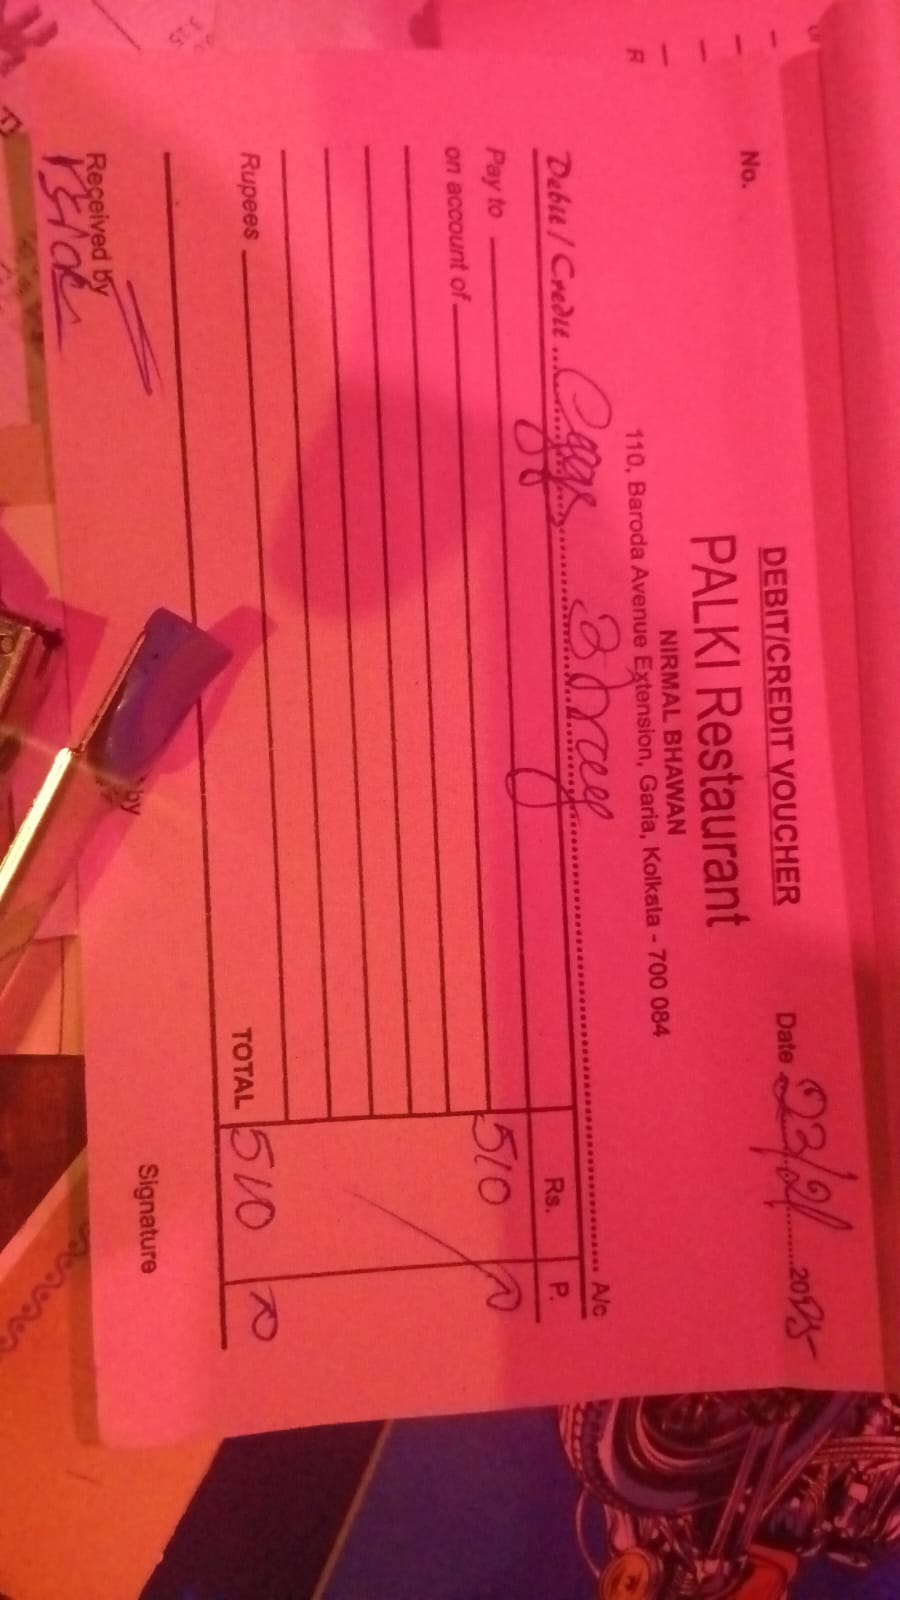 DEBIT/CREDIT VOUCHER
No.
Date 23/2/2025
PALKI Restaurant
NIRMAL BHAWAN
110, Baroda Avenue Extension, Garia, Kolkata - 700 084
Debit / Credit A/c
Rs. P.
Pay to 510
on account of
Rupees TOTAL 510
Received by
by
Signature